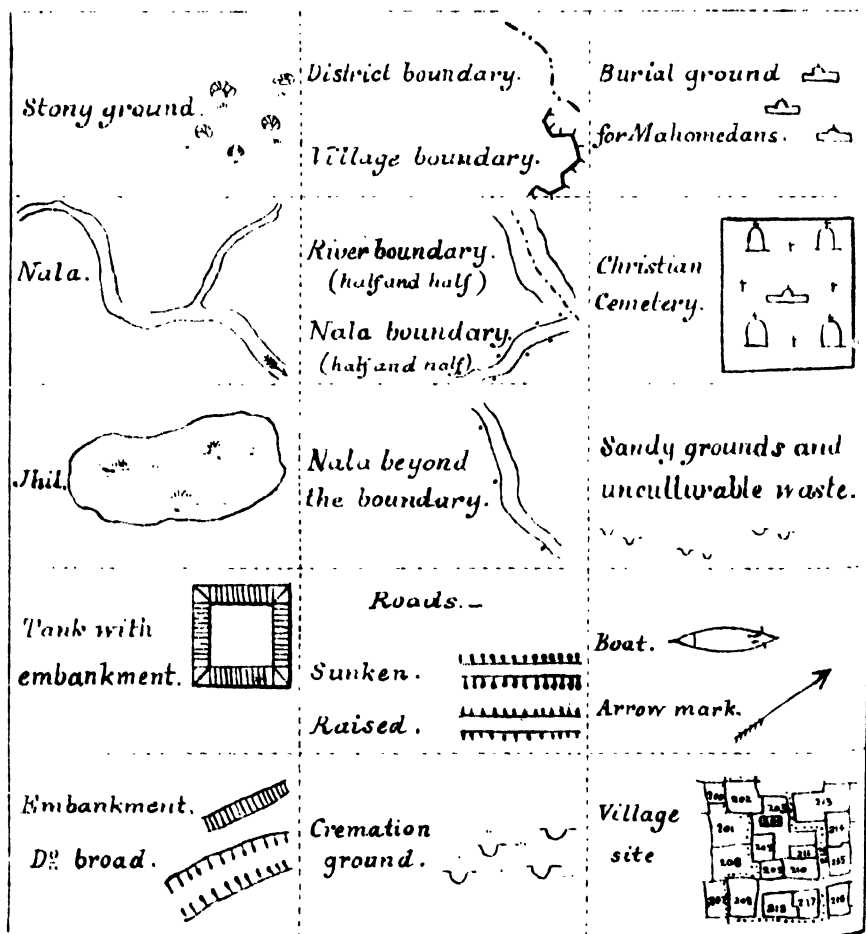 Stony ground.
District boundary.
Village boundary.
Burial ground
for Mahomedans.
Nala.
River boundary.
(half and half)
Nala boundary.
(half and half)
Christian
Cemetery.
Jhil.
Nala beyond
the boundary.
Sandy grounds and
unculturable waste.
Tank with
embankment.
Roads.—
Sunken.
Raised.
Boat.
Arrow mark.
Embankment.
Do. broad.
Cremation
ground.
Village
site
202
213
201
214
208
211
215
209
210
217
216